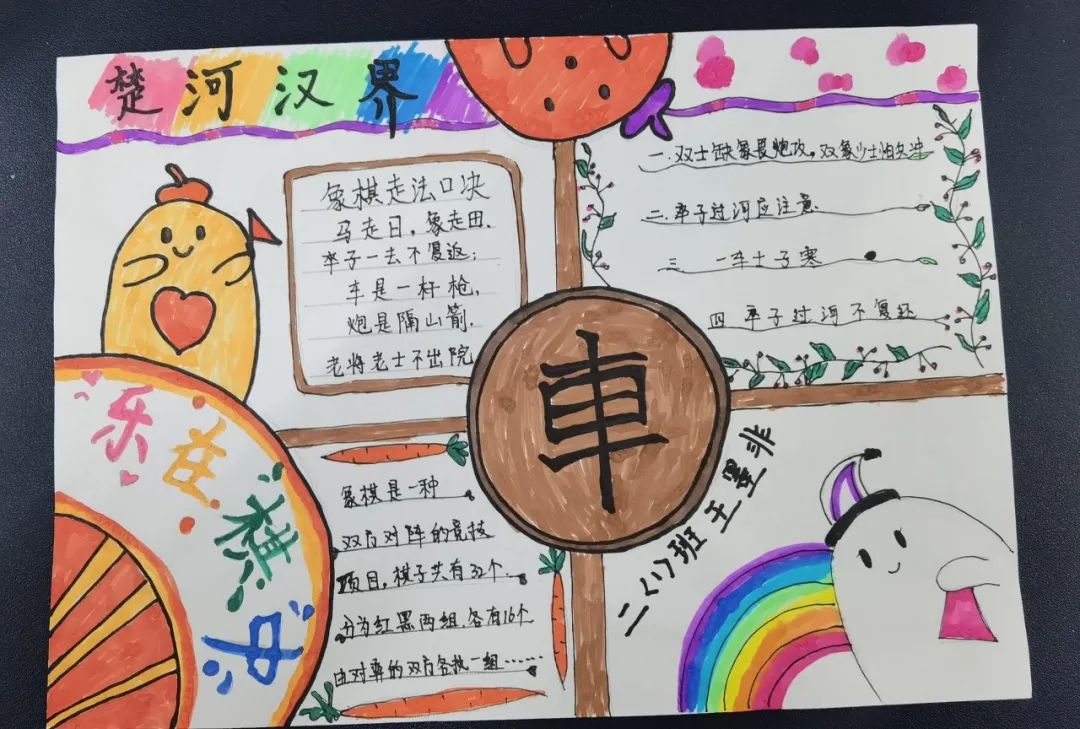 楚河汉界
象棋走法口决
马走日，象走田.
卒子一去不复返;
车是一杆枪,
炮是隔山箭.
老将老士不出院
一.双士缺象畏炮攻，双象少士怕兵冲
二.卒子过河应注意.
三 一车士子寒
四 卒子过河不复还
車
乐在棋中
象棋是一种
双方对阵的竞技
项目,棋子共有32个.
分为红黑两组.各有16个
由对弈的双方各执一组……
二(1)班王墨非